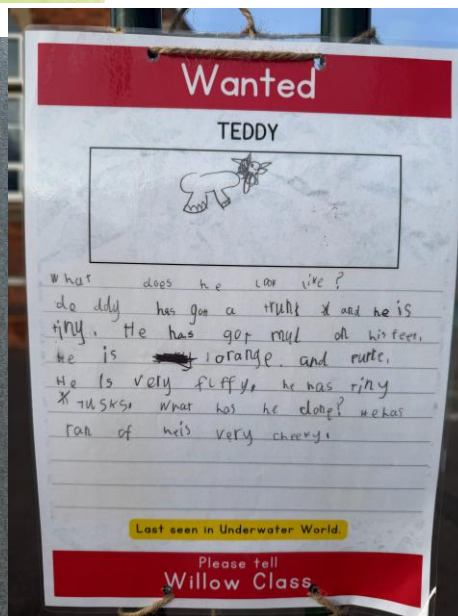 Wanted
TEDDY
What does he look like?
de ddy has got a trunk x and he is
tiny. He has got mul on his feet.
He is orange. and purle.
He Is very fluffy. he has tiny
x TUSKS. What has he done? He has
ran of heis very cheeky.
Last seen in Underwater World.
Please tell
Willow Class